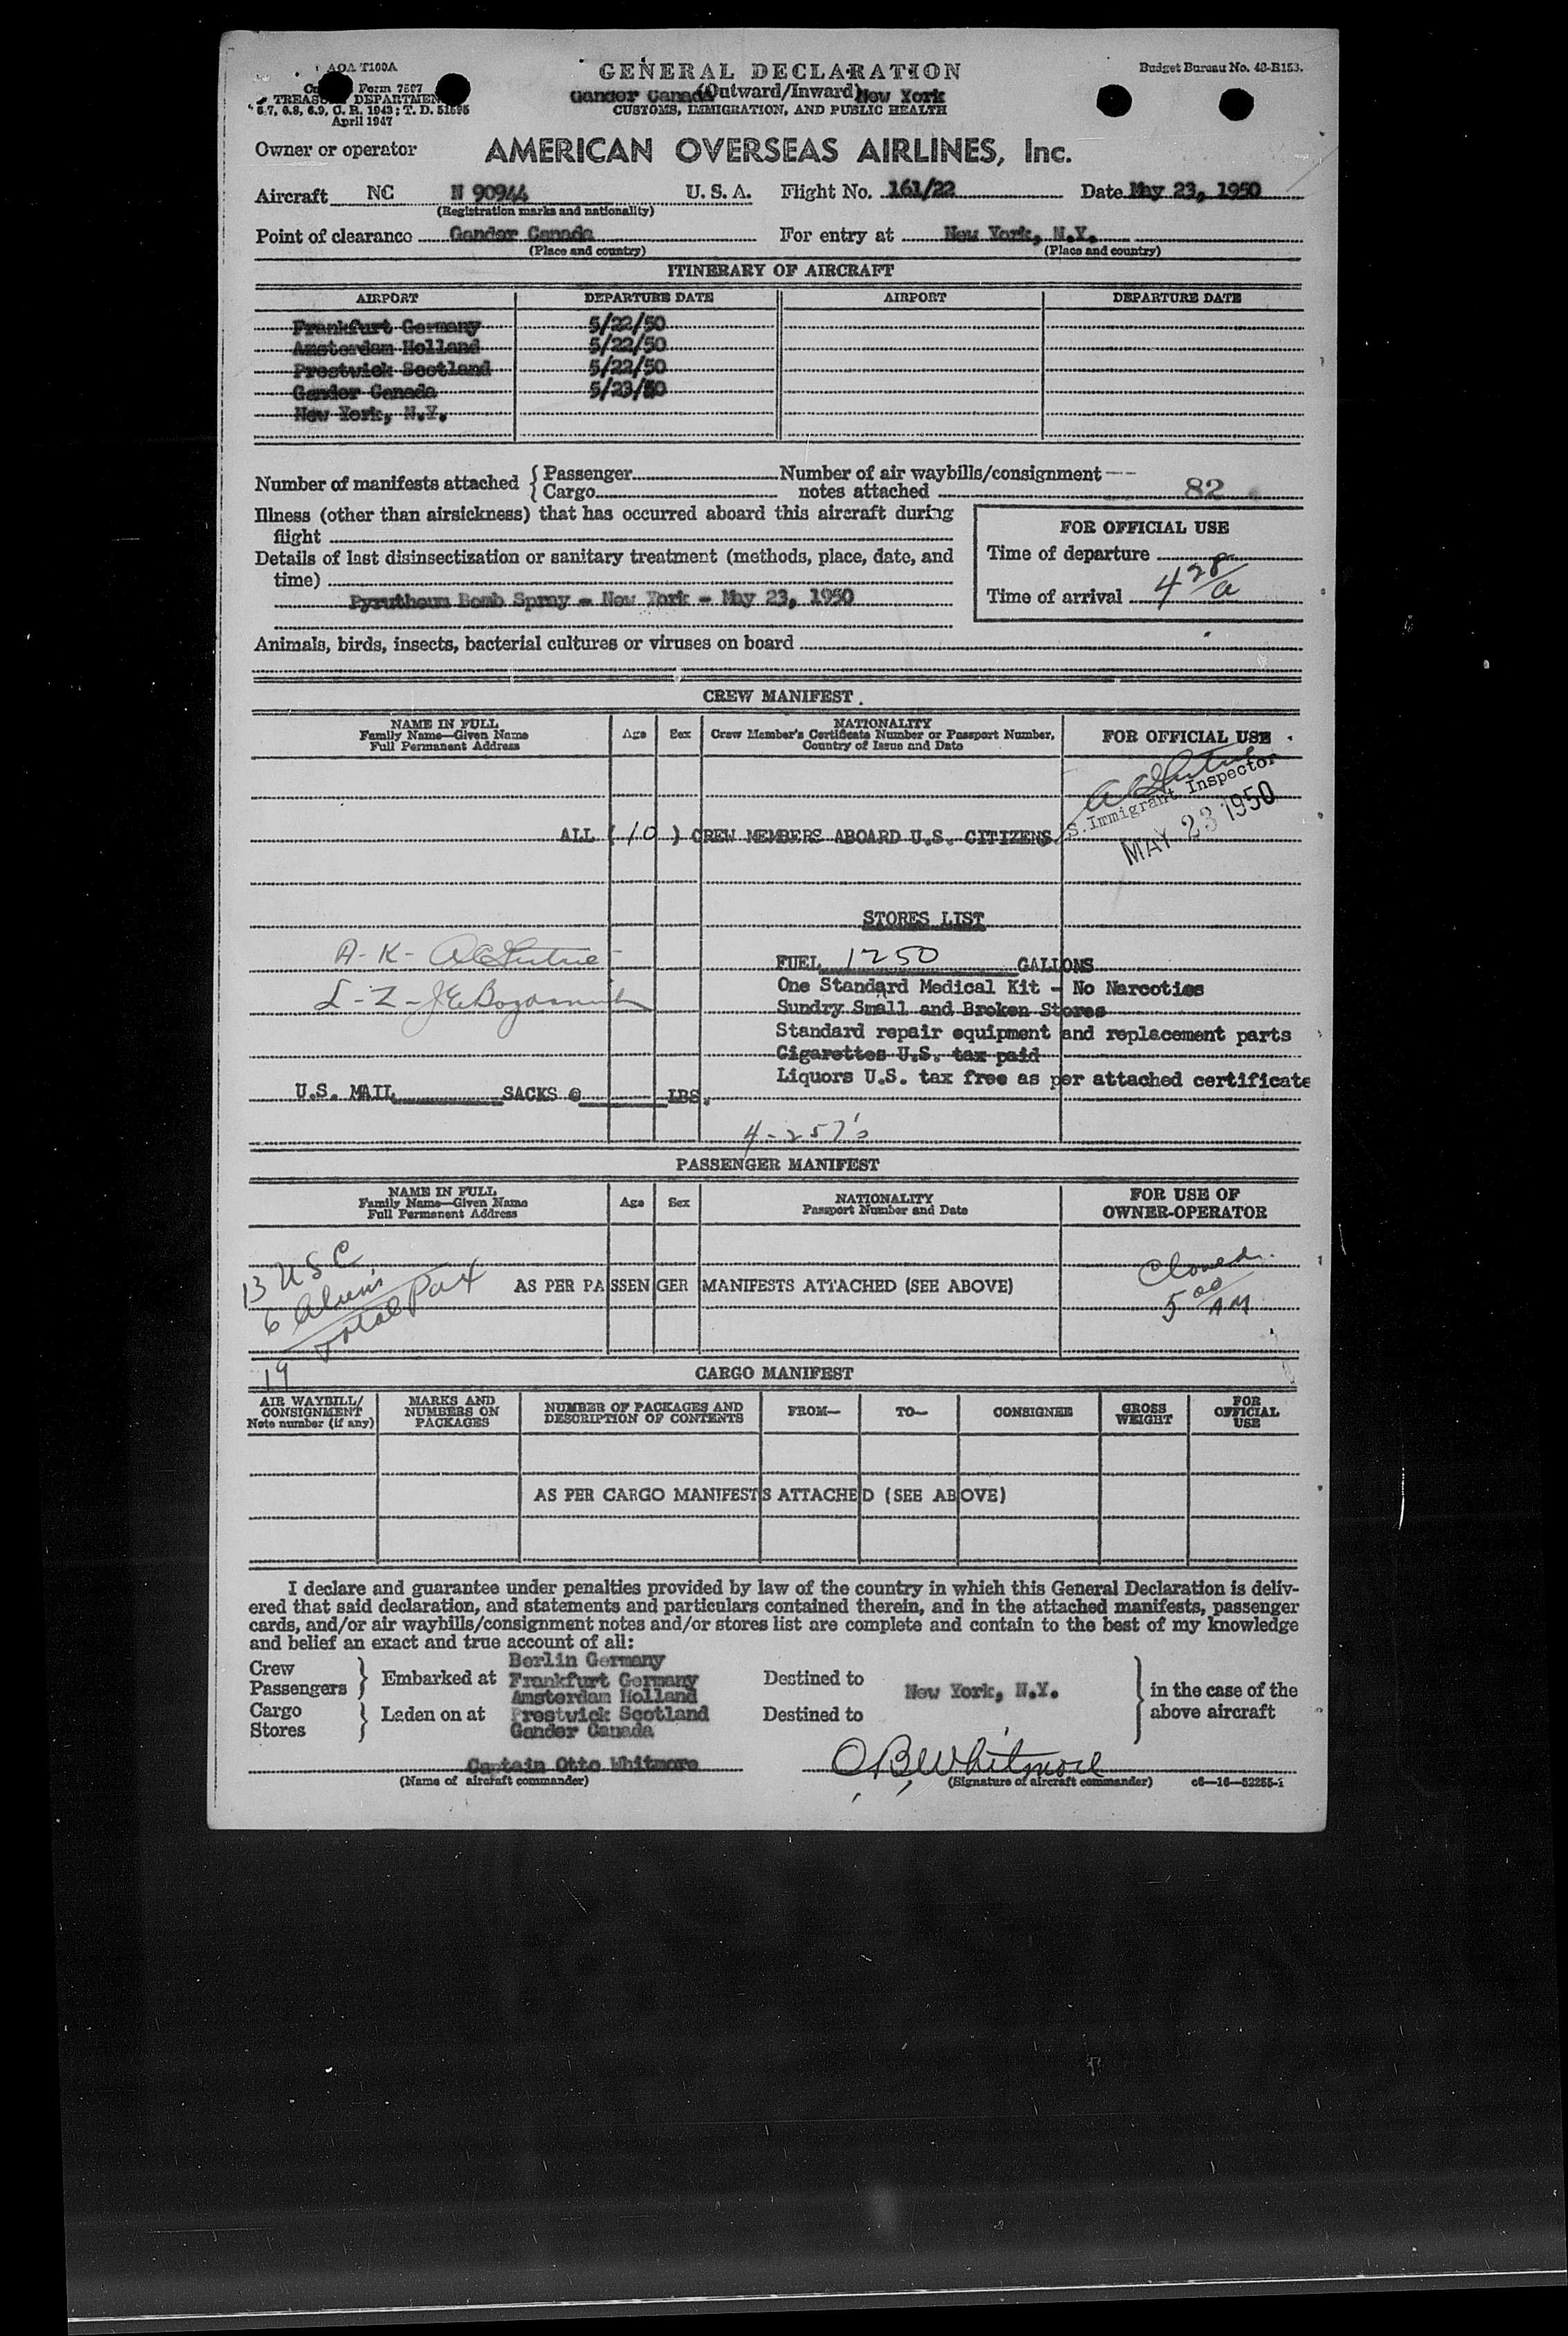 AOA T100A
Form 7507
TREASURY DEPARTMENT
6.7, 6.8, 6.9, C. R. 1943; T. D. 51595
April 1947
GENERAL DECLARATION
Gander Canada (Outward/Inward) New York
CUSTOMS, IMMIGRATION, AND PUBLIC HEALTH
Budget Bureau No. 48-R153.
Owner or operator AMERICAN OVERSEAS AIRLINES, Inc.
Aircraft NC N 90944 U. S. A. Flight No. 161/22 Date May 23, 1950
(Registration marks and nationality)
Point of clearance Gander Canada For entry at New York, N.Y.
(Place and country) (Place and country)
ITINERARY OF AIRCRAFT
AIRPORT DEPARTURE DATE AIRPORT DEPARTURE DATE
Frankfurt Germany 5/22/50
Amsterdam Holland 5/22/50
Prestwick Scotland 5/22/50
Gander Canada 5/23/50
New York, N.Y.
Number of manifests attached { Passenger Number of air waybills/consignment
{ Cargo notes attached 82
Illness (other than airsickness) that has occurred aboard this aircraft during
flight
Details of last disinsectization or sanitary treatment (methods, place, date, and
time)
Pyrutheum Bomb Spray - New York - May 23, 1950
FOR OFFICIAL USE
Time of departure
Time of arrival 4 28/a
Animals, birds, insects, bacterial cultures or viruses on board
CREW MANIFEST
NAME IN FULL
Family Name—Given Name
Full Permanent Address
Age
Sex
NATIONALITY
Crew Member's Certificate Number or Passport Number,
Country of Issue and Date
FOR OFFICIAL USE
S. Immigrant Inspector
MAY 23 1950
ALL (10) CREW MEMBERS ABOARD U.S. CITIZENS
STORES LIST
A-K-
FUEL 1250 GALLONS
One Standard Medical Kit - No Narcotics
L-Z-
Sundry Small and Broken Stores
Standard repair equipment and replacement parts
Cigarettes U.S. tax paid
Liquors U.S. tax free as per attached certificate
U.S. MAIL SACKS @ LBS.
4-257's
PASSENGER MANIFEST
NAME IN FULL
Family Name—Given Name
Full Permanent Address
Age
Sex
NATIONALITY
Passport Number and Date
FOR USE OF
OWNER-OPERATOR
13 USC
6 Aliens
19 Total Pax
AS PER PASSENGER MANIFESTS ATTACHED (SEE ABOVE)
Closed
5 00/AM
CARGO MANIFEST
AIR WAYBILL/
CONSIGNMENT
Note number (if any)
MARKS AND
NUMBERS ON
PACKAGES
NUMBER OF PACKAGES AND
DESCRIPTION OF CONTENTS
FROM—
TO—
CONSIGNEE
GROSS
WEIGHT
FOR
OFFICIAL
USE
AS PER CARGO MANIFESTS ATTACHED (SEE ABOVE)
I declare and guarantee under penalties provided by law of the country in which this General Declaration is deliv-
ered that said declaration, and statements and particulars contained therein, and in the attached manifests, passenger
cards, and/or air waybills/consignment notes and/or stores list are complete and contain to the best of my knowledge
and belief an exact and true account of all:
Crew
Passengers } Embarked at
Cargo
Stores } Laden on at
Berlin Germany
Frankfurt Germany
Amsterdam Holland
Prestwick Scotland
Gander Canada
Destined to
Destined to
New York, N.Y.
} in the case of the
above aircraft
Captain Otto Whitmore O.B. Whitmore
(Name of aircraft commander) (Signature of aircraft commander) c6—16—52255-1